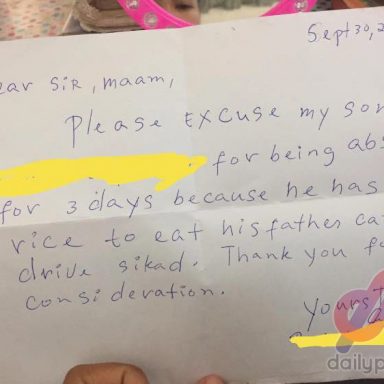 Sept 30, 2
ear Sir, maam,
Please Excuse my son
for being abs
for 3 days because he has
rice to eat his father ca
drive sikad. Thank you fo
consideration.
yours T
dailyp